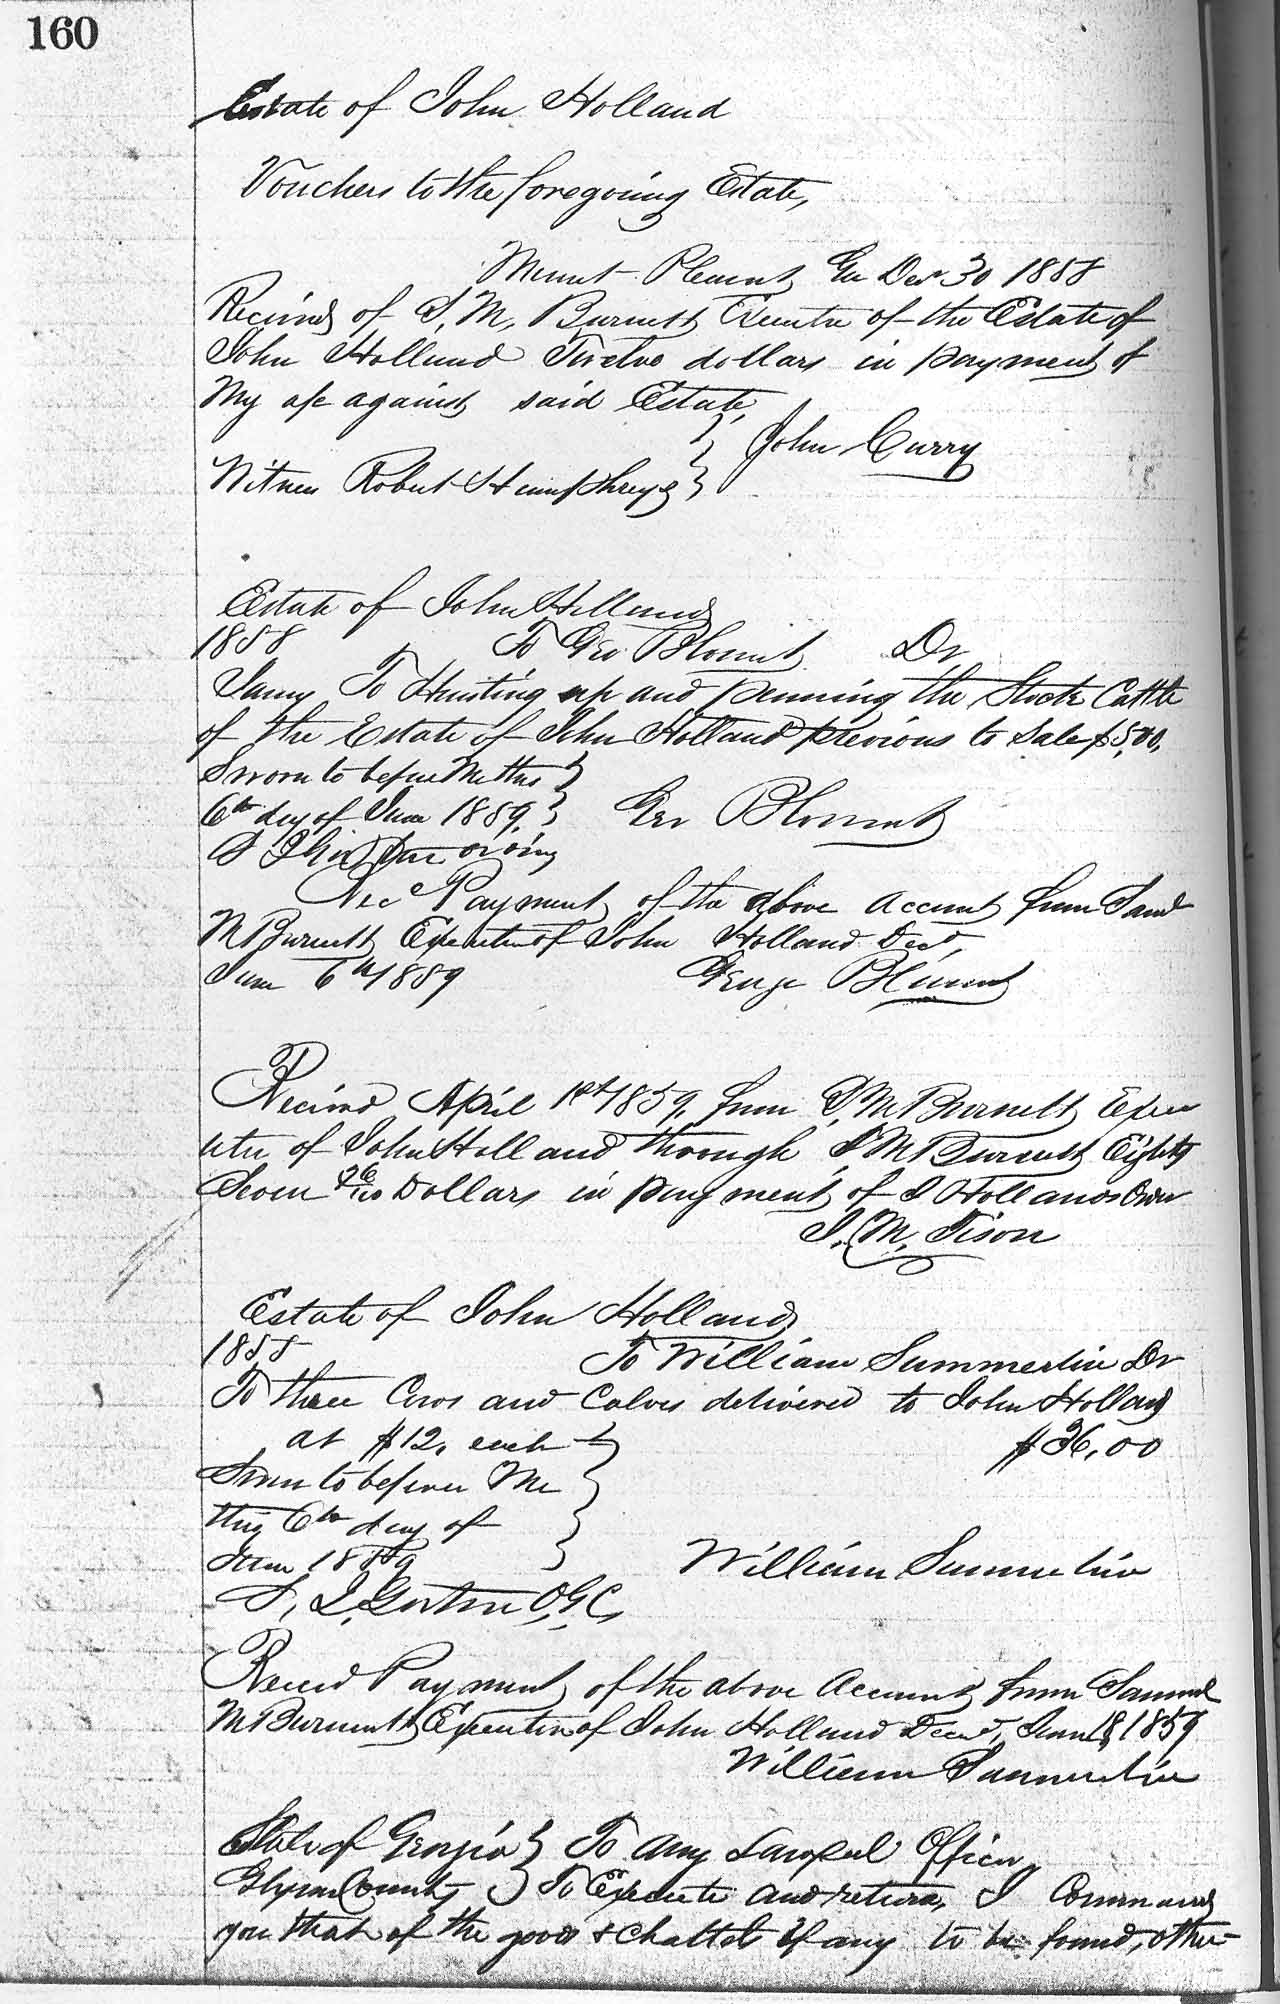 160
Estate of John Holland
Vouchers to the foregoing Estate,
Mount Pleasant Ga Decr 30 1858
Received of S, M, Burnett Executor of the Estate of
John Holland Twelve dollars in payment of
My a/c against said Estate,
John Curry
Witness Robert Humphreys
Estate of John Holland
1858 To Geo Blount Dr
Jany To Hunting up and penning the Stock Cattle
of the Estate of John Holland previous to Sale $5,00,
Sworn to before Me this
6th day of June 1859, Geo Blount
Rec Payment of the above account from Saml
M Burnett Executor of John Holland Decd,
June 6th 1859 George Blount
Received April 1st 1859, from S, M Burnett Execu
utor of John Holland through S M Burnett Eighty
Seven 26/100 Dollars in payment of J Hollands
J. M. Tison
Estate of John Holland
1858 To William Summerlin Dr
To three Cows and Calves delivered to John Holland
at $12, each $36,00
Sworn to before Me
this 6th day of
June 1859 William Summerlin
O,G,C,
Received Payment of the above Account from Samuel
M Burnett Executor of John Holland Decd, June 18 1859
William Summerlin
State of Georgia To any Lawful Officer
Glynn County To Execute and return, I Command
you that of the goods & chattels if any to be found, other-